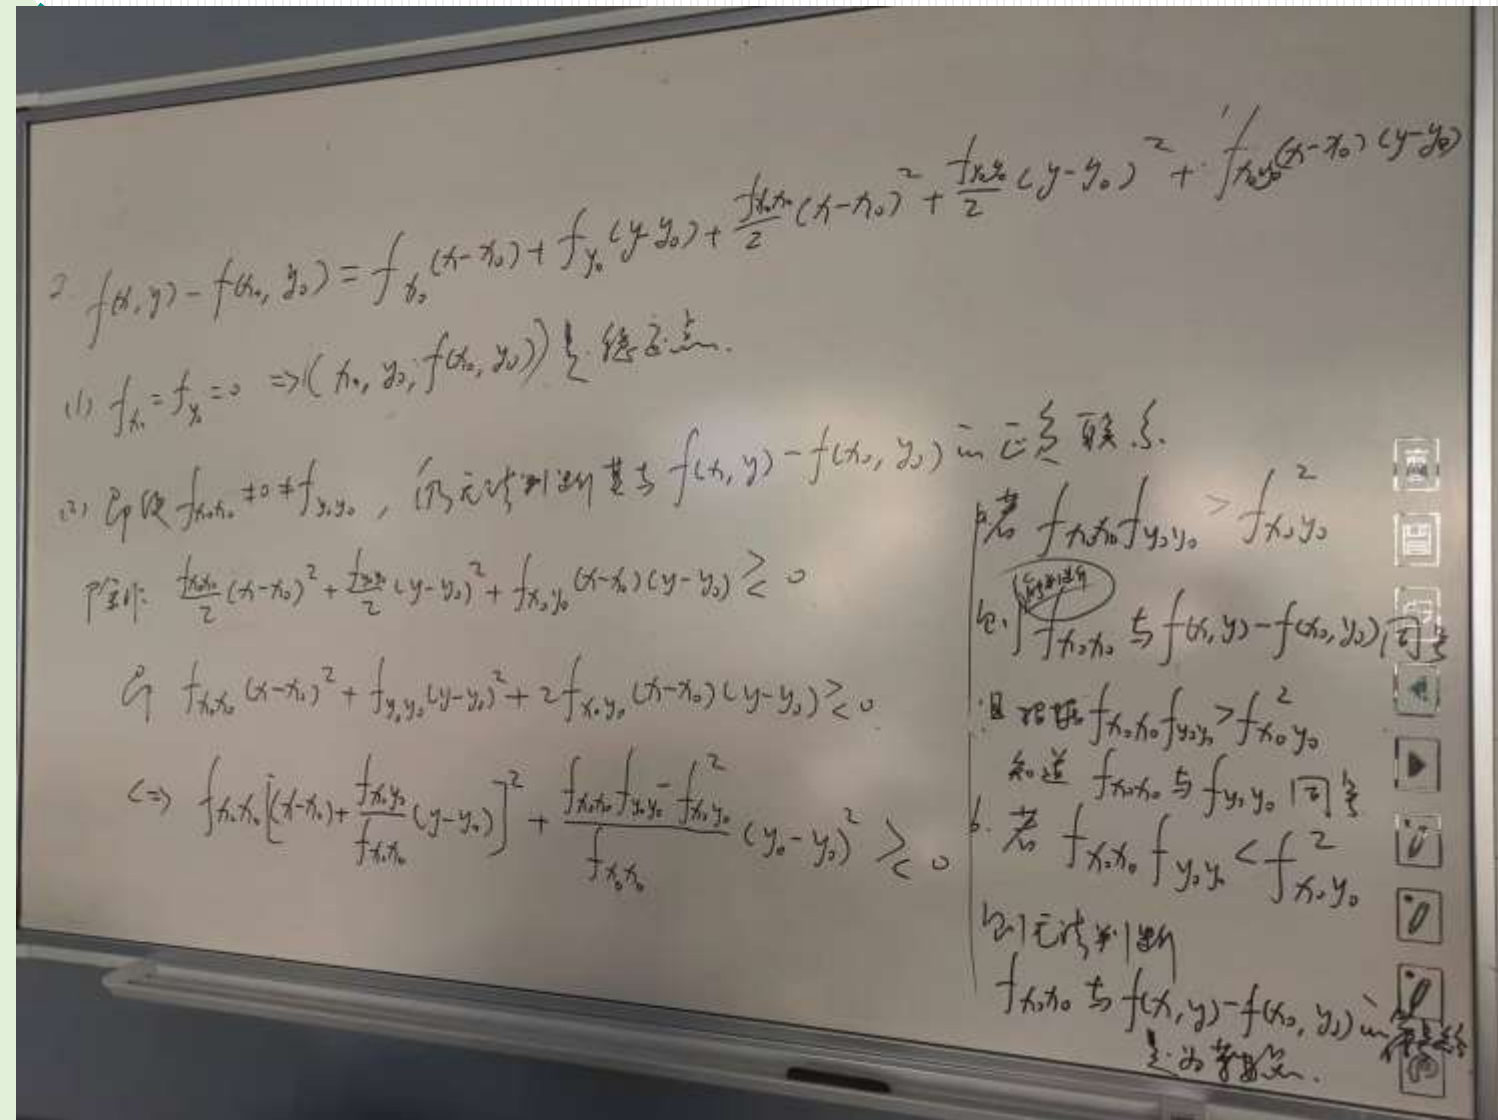 2. f(x,y)-f(x₀,y₀)=f_{x₀}(x-x₀)+f_{y₀}(y-y₀)+\frac{f_{x₀x₀}}{2}(x-x₀)²+\frac{f_{y₀y₀}}{2}(y-y₀)²+f_{x₀y₀}(x-x₀)(y-y₀)
(1) f_{x₀}=f_{y₀}=0 ⇒(x₀,y₀,f(x₀,y₀))是稳定点.
(2) 即使f_{x₀x₀}≠0≠f_{y₀y₀}, 仍无法判断其与f(x,y)-f(x₀,y₀)的正负联系.
除非: \frac{f_{x₀x₀}}{2}(x-x₀)²+\frac{f_{y₀y₀}}{2}(y-y₀)²+f_{x₀y₀}(x-x₀)(y-y₀)≷0
即 f_{x₀x₀}(x-x₀)²+f_{y₀y₀}(y-y₀)²+2f_{x₀y₀}(x-x₀)(y-y₀)≷0
<=> f_{x₀x₀}[(x-x₀)+\frac{f_{x₀y₀}}{f_{x₀x₀}}(y-y₀)]²+\frac{f_{x₀x₀}f_{y₀y₀}-f²_{x₀y₀}}{f_{x₀x₀}}(y₀-y₀)²≷0
若 f_{x₀x₀}f_{y₀y₀}>f²_{x₀y₀}
能判断
则 f_{x₀x₀}与f(x,y)-f(x₀,y₀)同号
且根据f_{x₀x₀}f_{y₀y₀}>f²_{x₀y₀}
知道 f_{x₀x₀}与f_{y₀y₀}同号
b. 若 f_{x₀x₀}f_{y₀y₀}<f²_{x₀y₀}
则无法判断
f_{x₀x₀}与f(x,y)-f(x₀,y₀)的
是为鞍点.